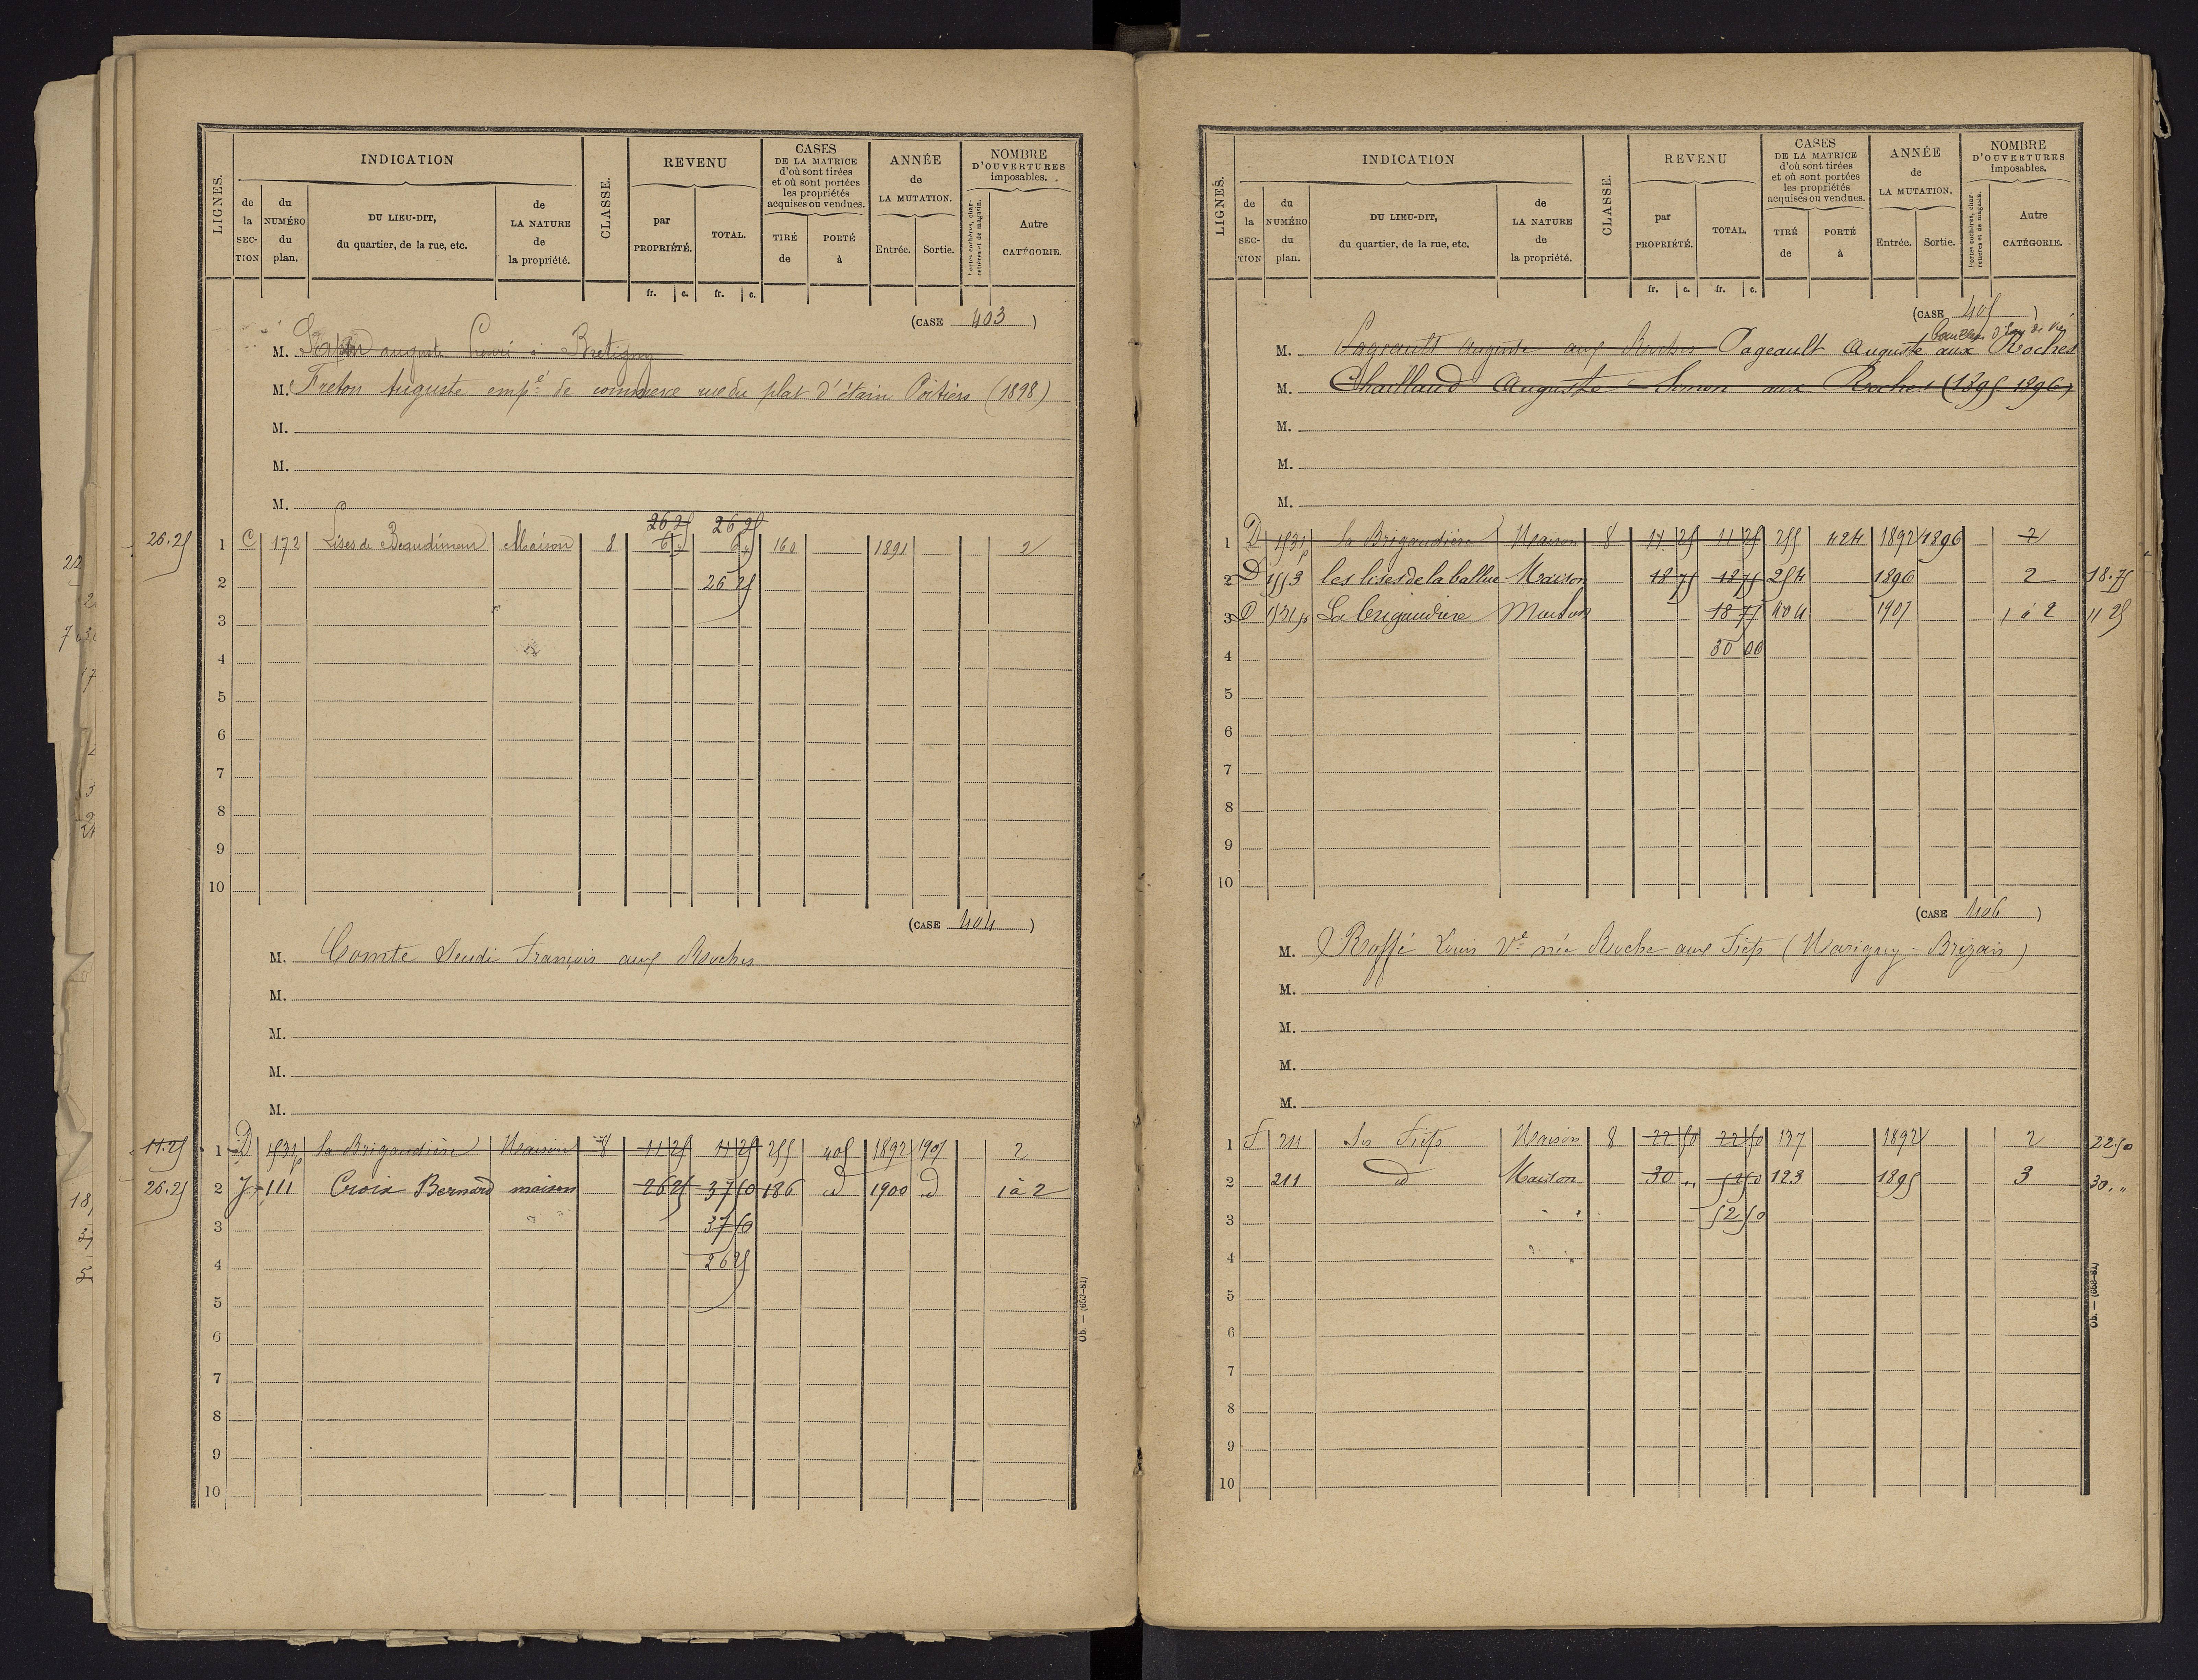 LIGNES.
INDICATION
de la SECTION
du NUMÉRO du plan.
DU LIEU-DIT, du quartier, de la rue, etc.
de LA NATURE de la propriété.
CLASSE.
REVENU
par PROPRIÉTÉ.
TOTAL.
fr. c. fr. c.
CASES DE LA MATRICE d'où sont tirées et où sont portées les propriétés acquises ou vendues.
TIRÉ de
PORTÉ à
ANNÉE de LA MUTATION.
Entrée. Sortie.
NOMBRE D'OUVERTURES imposables.
Portes cochères, charretières et de magasin.
Autre CATÉGORIE.
(CASE 403)
M. auguste henri à Bretigny
M. Freton Auguste emp.é de commerce rue du plat d'étain Poitiers (1898)
M.
M.
M.
26 25 26 25
26.25 1 C 172 Lises de Beaudiment Maison 8 6 6 160 1891 2
2 26 25
3
4
5
6
7
8
9
10
(CASE 404)
M. Comte Seudi François aux Roches
M.
M.
M.
M.
11.25 1 D 1531p la Brigaudière Maison 8 11 25 11 25 255 405 1892 1907 2
26.25 2 J 111 Croix Bernard maison 26 25 37 50 186 d 1900 d 1 à 2
3 37 50
4 26 25
5
6
7
8
9
10
Ob. — (653-81)
LIGNES.
INDICATION
de la SECTION
du NUMÉRO du plan.
DU LIEU-DIT, du quartier, de la rue, etc.
de LA NATURE de la propriété.
CLASSE.
REVENU
par PROPRIÉTÉ.
TOTAL.
fr. c. fr. c.
CASES DE LA MATRICE d'où sont tirées et où sont portées les propriétés acquises ou vendues.
TIRÉ de
PORTÉ à
ANNÉE de LA MUTATION.
Entrée. Sortie.
NOMBRE D'OUVERTURES imposables.
Portes cochères, charretières et de magasin.
Autre CATÉGORIE.
(CASE 405)
M. Pageault Auguste aux Roches Pageault Auguste aux Roches
M. Chaillaud Auguste Simon aux Roches (1895-1896)
M.
M.
M.
1 D 1531p la Brigaudière Maison 8 11 25 11 25 255 424 1892 1896 2
2 D 1553 les lises de la ballue Maison 18 75 18 75 254 1896 2 18.75
3 D 1531p La Brigaudière Maison 18 75 404 1907 1 à 2 11 25
4 30 00
5
6
7
8
9
10
(CASE 406)
M. Roffé Louis Vve née Roche aux Fiefs (Marigny-Brizais)
M.
M.
M.
M.
1 F 211 Les Fiefs Maison 8 22 50 22 50 137 1892 2 22.50
2 211 d Maison 30 " 52 50 123 1895 3 30."
3 52 50
4
5
6
7
8
9
10
Ob. — (653-81)